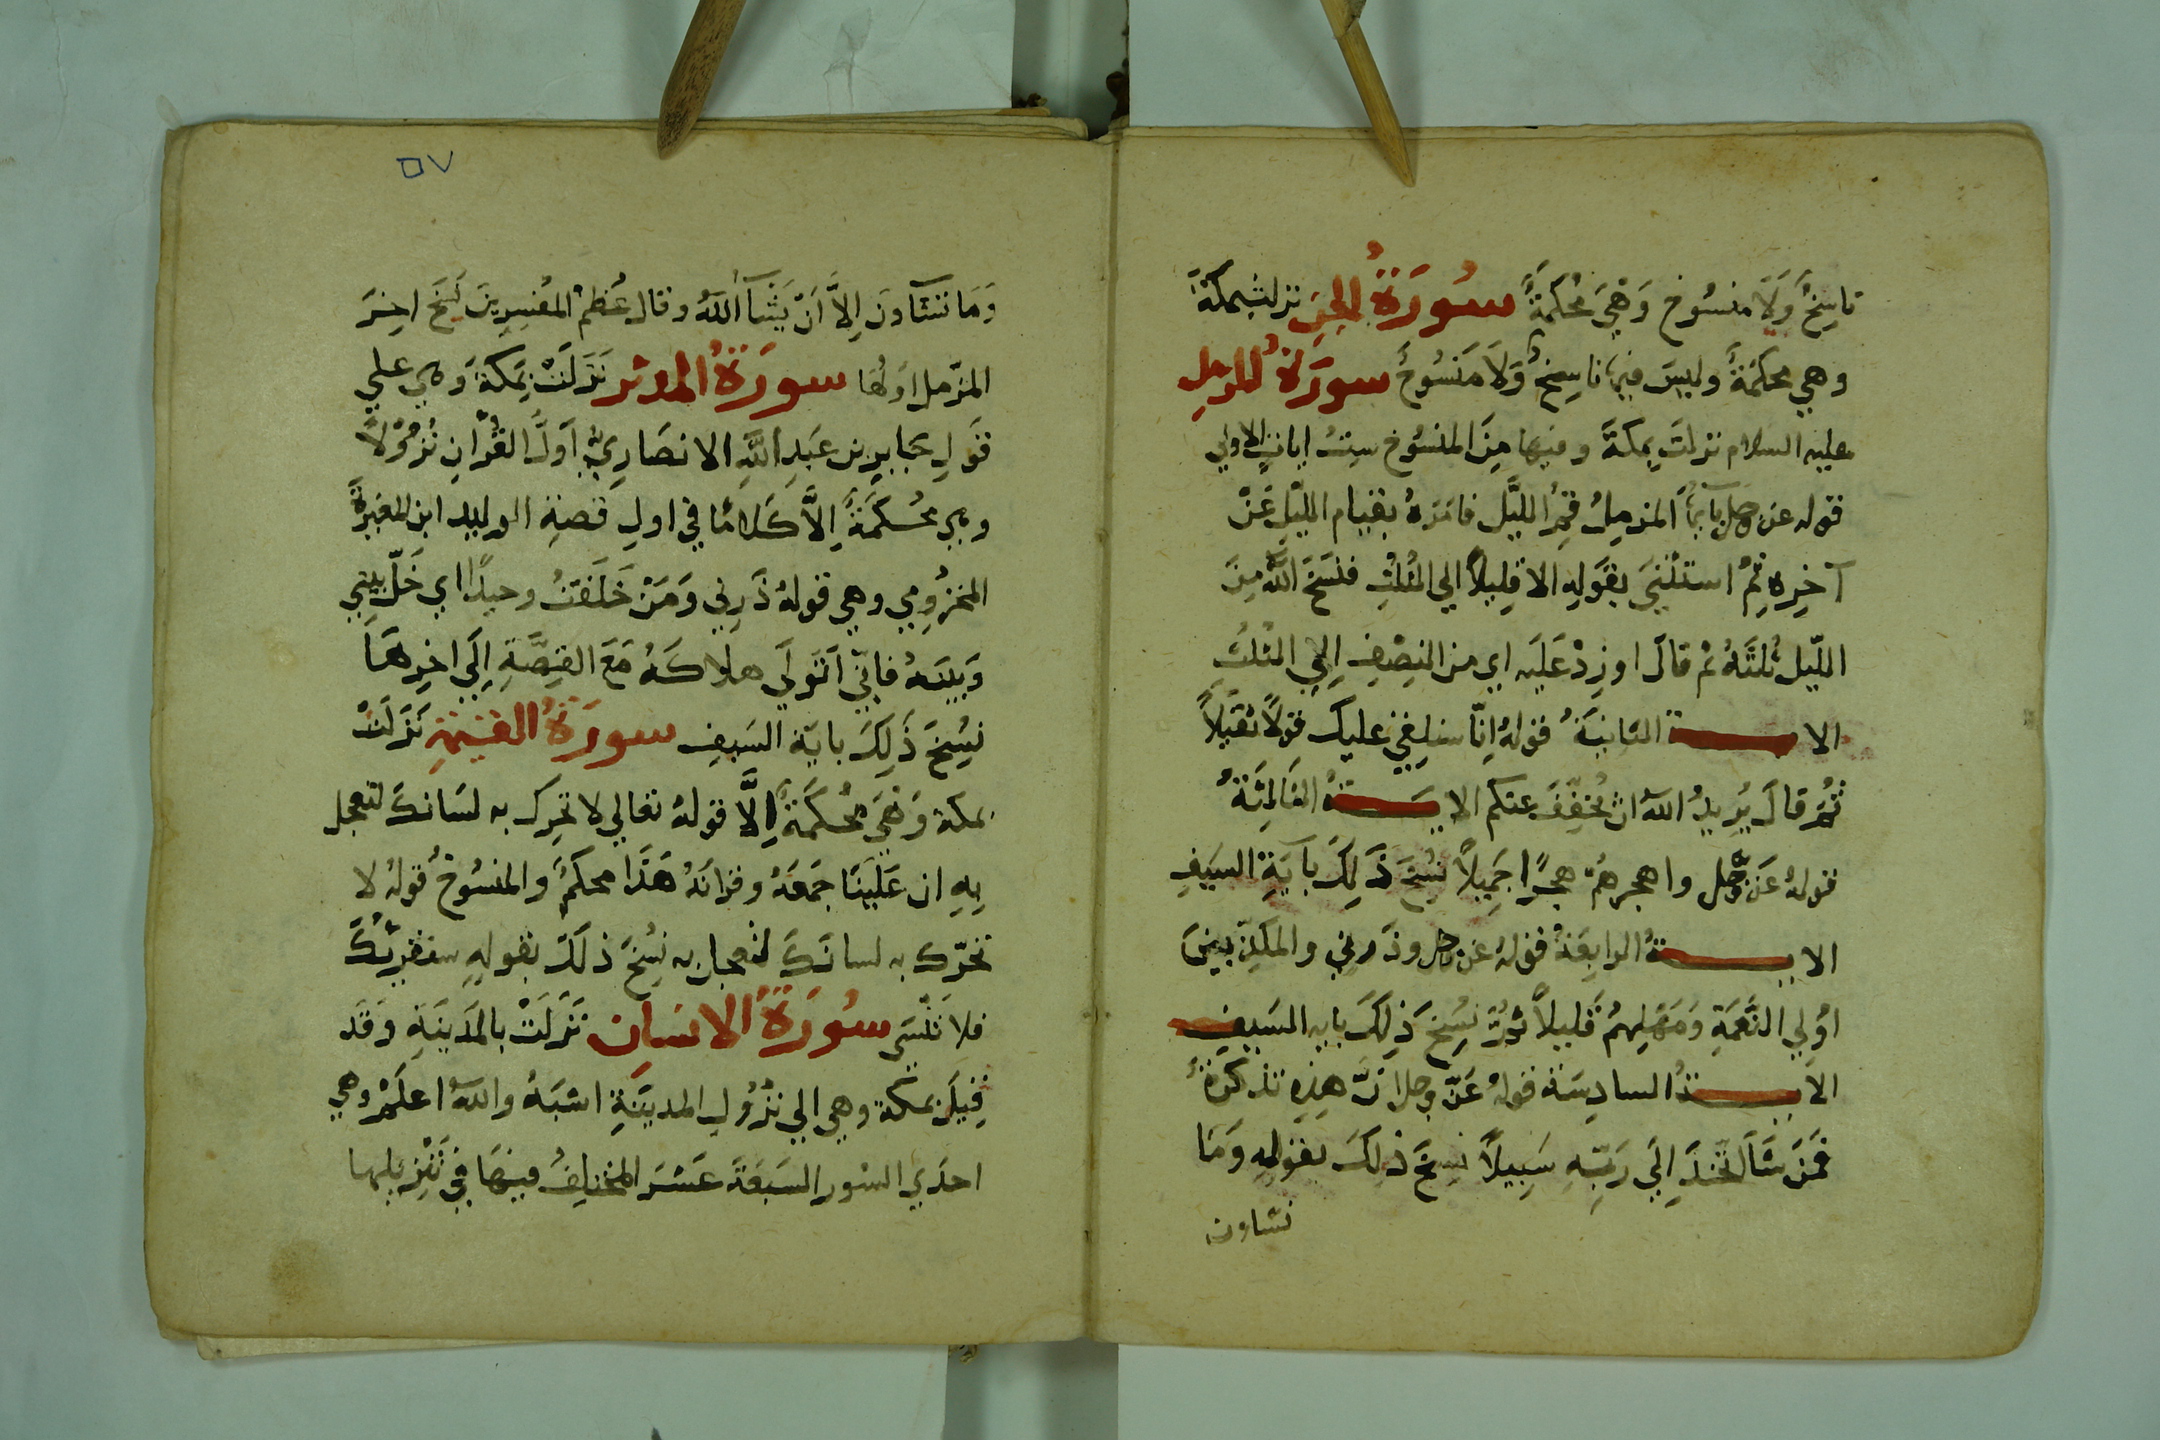 ناسِخٌ وَلَا منسُوخ وَهْيَ مُحْكَمَةٌ سُورَةُ الجِنِ نزلت بمكة
وهي محكمَةٌ وليسَ فيها ناسِخٌ وَلَا مَنسُوخٌ سورَة المزمل
عليه السلام نزلتَ بِمكةَ وفيها مِنَ المنسُوخ سِتُ ايات الاولي
قوله عز وجل يايُّهَا المزمِلُ قمِ الليَّل فامَرَهُ بقيام الليْل عَنْ
آخِرِه ثمْ استثْنيَ بقَولِهِ الا قليلاً الي الثُلثِ فنَسَخَ اللَّه مِنَ
الليّل ثُلثَهُ ثم قالَ اوزِدْ عَلَيَه اي من النِصْفِ اِلي الثلثِ
الايـــة الثانيَةُ قولهُ اِنّا سَنلقي عليك قولاً ثَقيلاً
ثُمَّ قالَ يُرِيدُ اللهُ ان يُخفِّفَ عنكم الايَـــةُ الثَالِثَةُ
قولهُ عَزَّ وجَّل واهجرهُمْ هجرًا جَمِيلاً نُسِخَ ذَلِكَ بآيَةِ السَيفِ
الايـــةُ الرابعَةُ قولهُ عز وجل وذَرني والمكذّبينَ
اوُلِي النَّعَمَةِ وَمَهّلِهمُ قَليلاً ثمَّ نسِخَ ذَلِكَ بايه السَيفِ
الايـــةُ السادِسَة قولهُ عَزّ وجل انَّ هِذِهِ تذكرَةٌ
فمَنَ شَآَ اتّخَذَ اِلَي رَبّهِ سَبِيلاً نسِخَ ذلِكَ بقولِهِ وَمَا
تشاون
٥٧
وَمَا تَشَآوُنَ اِلاَّ اَنْ يَشَآَ اللَّهُ وقال عُظمْ المفُسِرِينَ نُسِخَ اخِرَ
المزّمل اولُهَا سورَةُ المدثر نَزَلَتْ بمَكَةَ وَهي علي
قَولِ جَابِرِ بن عَبدِ اللَّهِ الانصَارِيّ اَوَلُ القُرْانِ نُزُوْلاً
وهي مُحْكَمَةٌ اِلاَّ كَلَامًا في اولِ قصةِ الوليد ابن المغيرةَ
المخزُومِي وهي قولهُ ذَرنِي وَمَنْ خَلَقتُ وحيدًا اي خَلّ بيني
وَبينَهُ فاِنّي اَتَولَي هلاكَهُ مَعَ القِصَّةِ اِلَي اخِرِهَا
نسِخَ ذَلِكَ بايَة السَيفِ سورَةُ القيمَةِ نَزَلَتْ
بمكة وَهْيَ مُحْكَمَةٌ اِلَّا قولهُ تعالي لا تحِرك به لسَانكَ لتعجل
بِهِ ان عَلَينَا جَمَعَهُ وقرانَهُ هَذَا محكمُ والمنسُوخُ قولهُ لا
تحَرّك به لسانَكَ لتعجل به نسِخَ ذلَكَ بقولهِ سنقرِئُكَ
فلاَ تَنْسَي سُورَةُ الانسَان نَزَلَتْ بالمَدَينَةِ وَقَد
قِيلَ بمكة وهي الي نزُوْلِ المدينَةِ اشبَهُ واللهُ اعلَمُ وهي
احدَي السُور السَبَعَةَ عَشرَ المختلِفُ فيهَا في تَنزِيلِها